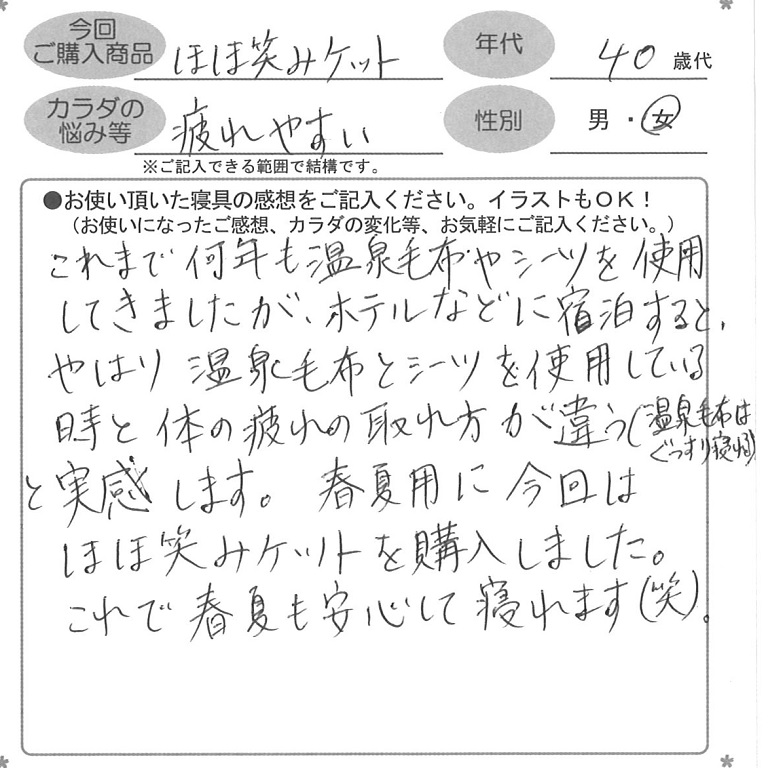 今回
ご購入商品
ほほ笑みケット
年代
40 歳代
カラダの
悩み等
疲れやすい
性別
男・女
※ご記入できる範囲で結構です。
●お使い頂いた寝具の感想をご記入ください。イラストもOK！
（お使いになったご感想、カラダの変化等、お気軽にご記入ください。）
これまで何年も温泉毛布やシーツを使用
してきましたが、ホテルなどに宿泊すると、
やはり温泉毛布とシーツを使用している
時と体の疲れの取れ方が違う(温泉毛布は
ぐっすり寝れる)
と実感します。春夏用に今回は
ほほ笑みケットを購入しました。
これで春夏も安心して寝れます(笑)。